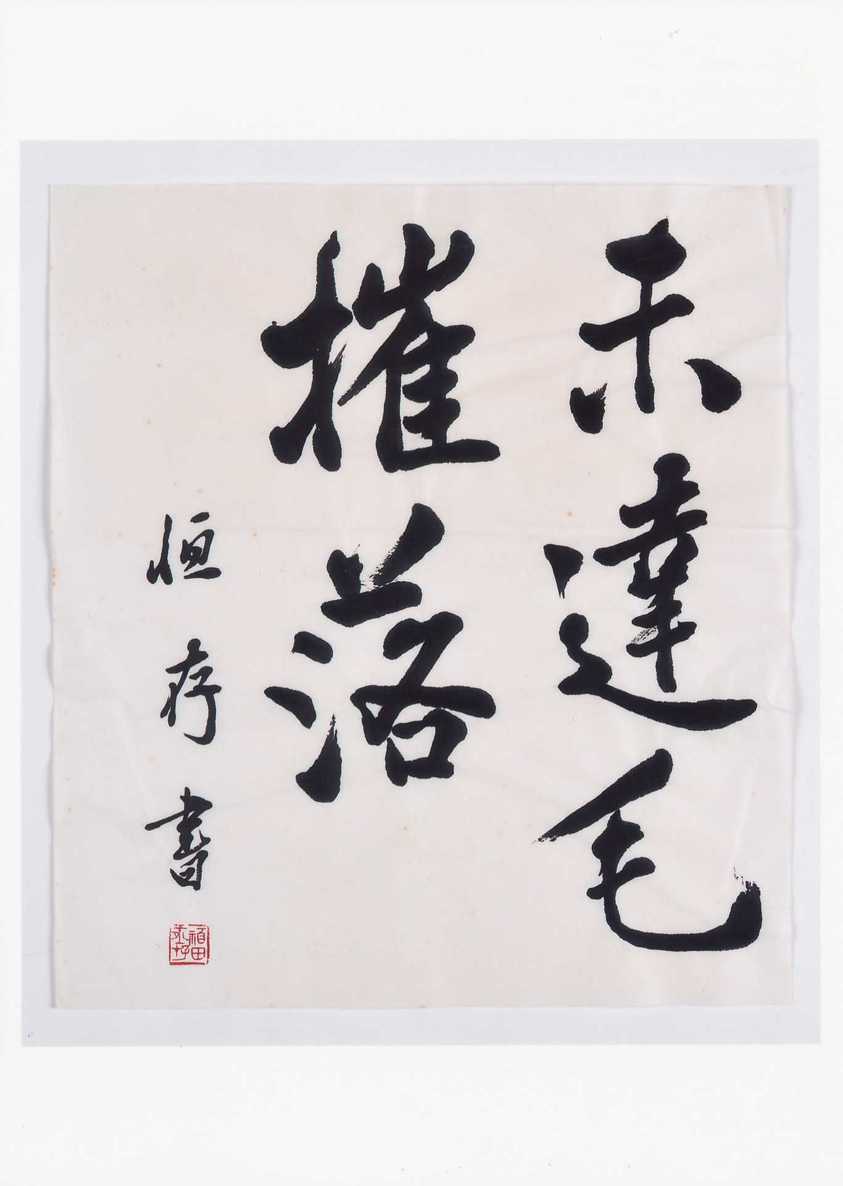 未達毛
摧落
恒存書
福田
恆存